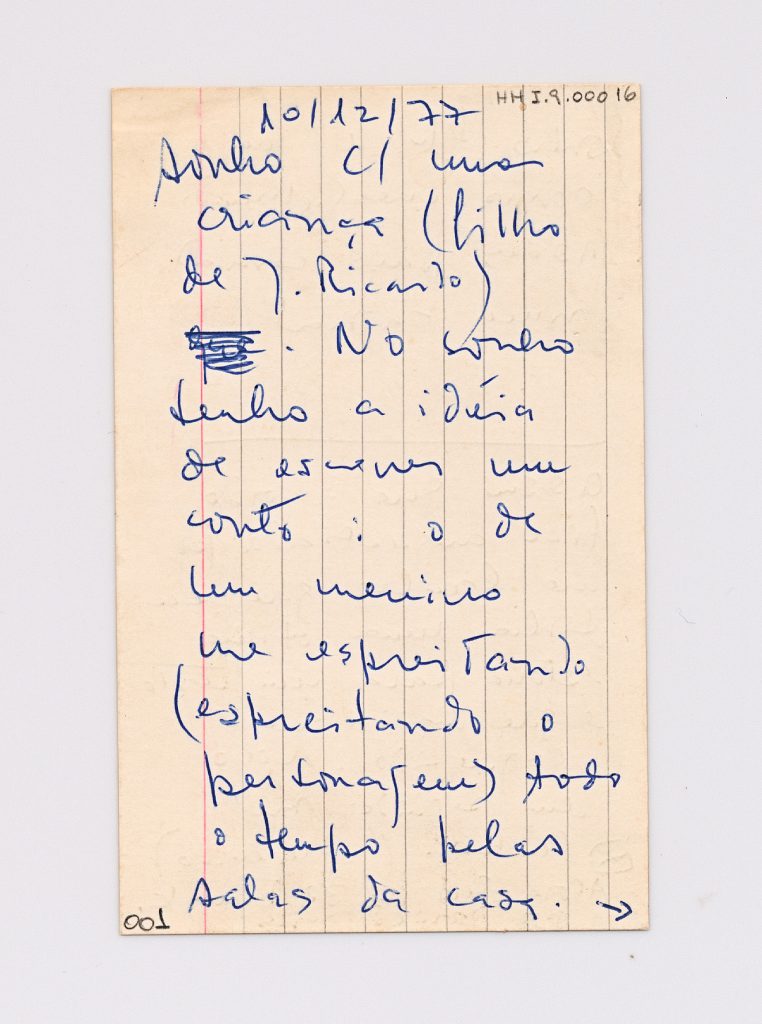 HH I.9.00016
10/12/77
sonho c/ uma
criança (filho
de J. Ricardo)
. No sonho
tenho a idéia
de escrever um
conto : o de
um menino
me espreitando
(espreitando o
personagem) todo
o tempo pelas
salas da casa. →
001